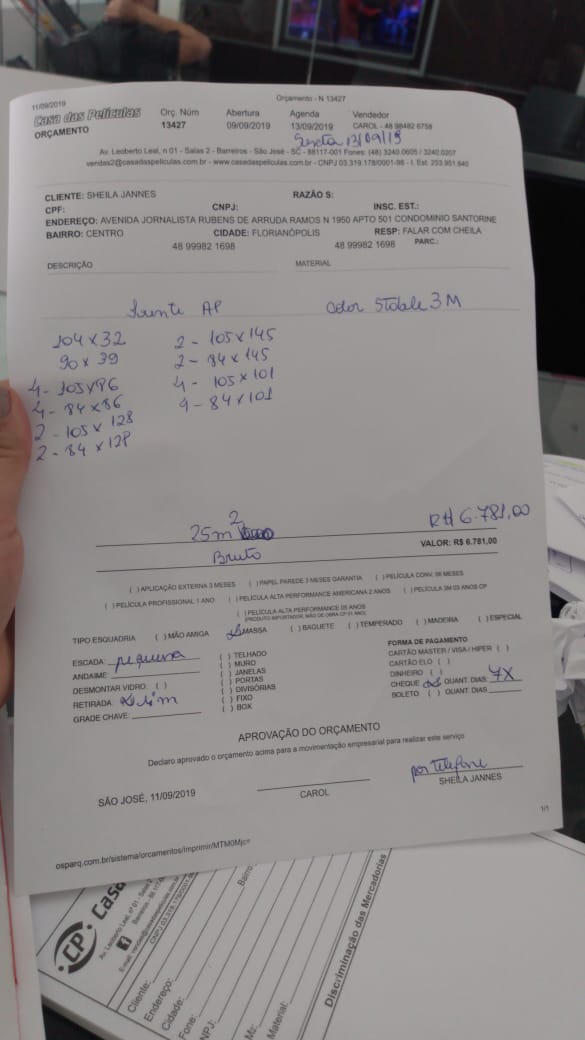 11/09/2019
Orçamento - N 13427
Casa das Películas
ORÇAMENTO
Orç. Núm Abertura Agenda Vendedor
13427 09/09/2019 13/09/2019 CAROL - 48 98482 6758
Sexta 13/09/19
Av. Leoberto Leal, n 01 - Salas 2 - Barreiros - São José - SC - 88117-001 Fones: (48) 3240.0605 / 3240.0207
vendas2@casadaspeliculas.com.br - www.casadaspeliculas.com.br - CNPJ 03.319.178/0001-98 - I. Est. 253.951.640
CLIENTE: SHEILA JANNES RAZÃO S:
CPF: CNPJ: INSC. EST.:
ENDEREÇO: AVENIDA JORNALISTA RUBENS DE ARRUDA RAMOS N 1950 APTO 501 CONDOMINIO SANTORINE
BAIRRO: CENTRO CIDADE: FLORIANÓPOLIS RESP: FALAR COM CHEILA
48 99982 1698 48 99982 1698 PARC.:
DESCRIÇÃO MATERIAL
AP 3M
104 x 32 2 - 105 x 145
90 x 39 2 - 84 x 145
4 - 105 x 86 4 - 105 x 101
4 - 84 x 86 4 - 84 x 101
2 - 105 x 128
2 - 84 x 128
25m2 R$ 6.781,00
Bruto VALOR: R$ 6.781,00
( ) APLICAÇÃO EXTERNA 3 MESES ( ) PAPEL PAREDE 3 MESES GARANTIA ( ) PELÍCULA CONV. 06 MESES
( ) PELÍCULA PROFISSIONAL 1 ANO ( ) PELÍCULA ALTA PERFORMANCE AMERICANA 2 ANOS ( ) PELÍCULA 3M 03 ANOS CP
( ) PELÍCULA ALTA PERFORMANCE 05 ANOS
(PRODUTO IMPORTADOR, MÃO DE OBRA CP 01 ANO)
TIPO ESQUADRIA ( ) MÃO AMIGA (x) MASSA ( ) BAGUETE ( ) TEMPERADO ( ) MADEIRA ( ) ESPECIAL
ESCADA: pequena
ANDAIME:
DESMONTAR VIDRO: ( )
RETIRADA: (x) sim
GRADE CHAVE:
( ) TELHADO
( ) MURO
( ) JANELAS
( ) PORTAS
( ) DIVISÓRIAS
( ) FIXO
( ) BOX
FORMA DE PAGAMENTO
CARTÃO MASTER / VISA / HIPER ( )
CARTÃO ELO ( )
DINHEIRO ( )
CHEQUE (x) QUANT. DIAS: 7X
BOLETO ( ) QUANT. DIAS
APROVAÇÃO DO ORÇAMENTO
Declaro aprovado o orçamento acima para a movimentação empresarial para realizar este serviço
SÃO JOSÉ, 11/09/2019
CAROL
por telefone
SHEILA JANNES
1/1
osparq.com.br/sistema/orcamentos/imprimir/MTM0Mjc=
CP
Casa
Av. Leoberto Leal, nº 01 - Salas 2
Cliente:
Endereço:
Bairro:
Cidade:
Fone:
Material:
Discriminação das Mercadorias